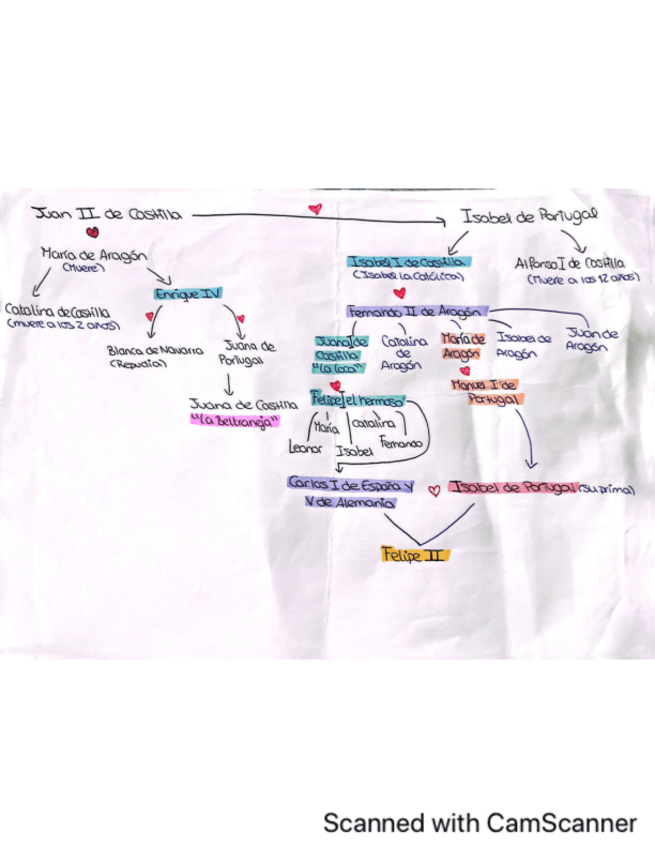 Juan II de Castilla
Isabel de Portugal
María de Aragón
(Muere)
Isabel I de Castilla
(Isabel la Católica)
Alfonso I de Castilla
(Muere a los 12 años)
Catalina de Castilla
(muere a los 2 años)
Enrique IV
Fernando II de Aragón
Blanca de Navarra
(Repudia)
Juana de
Portugal
Juana I de
Castilla
"La Loca"
Catalina
de
Aragón
María de
Aragón
Isabel de
Aragón
Juan de
Aragón
Manuel I de
Portugal
Juana de Castilla
"La Beltraneja"
Felipe I el hermoso
Leonor
María
Isabel
Catalina
Fernando
Carlos I de España y
V de Alemania
Isabel de Portugal (su prima)
Felipe II
Scanned with CamScanner